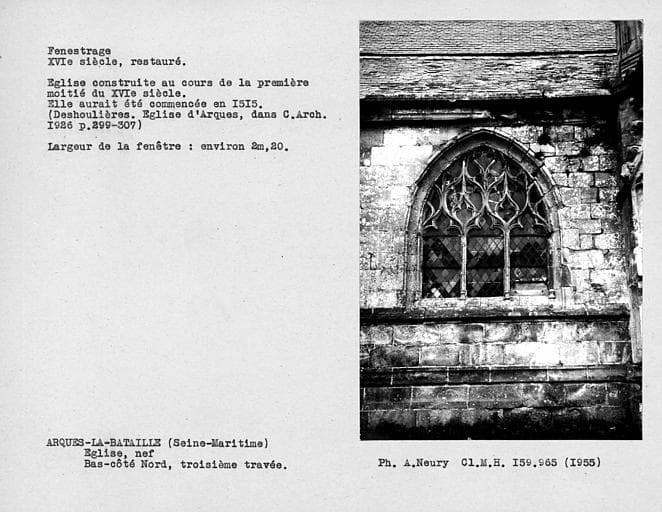 Fenestrage
XVIe siècle, restauré.
Eglise construite au cours de la première
moitié du XVIe siècle.
Elle aurait été commencée en I5I5.
(Deshoulières. Eglise d'Arques, dans C.Arch.
I926 p.299-307)
Largeur de la fenêtre : environ 2m,20.
ARQUES-LA-BATAILLE (Seine-Maritime)
Eglise, nef
Bas-côté Nord, troisième travée.
Ph. A.Neury Cl.M.H. I59.965 (I955)